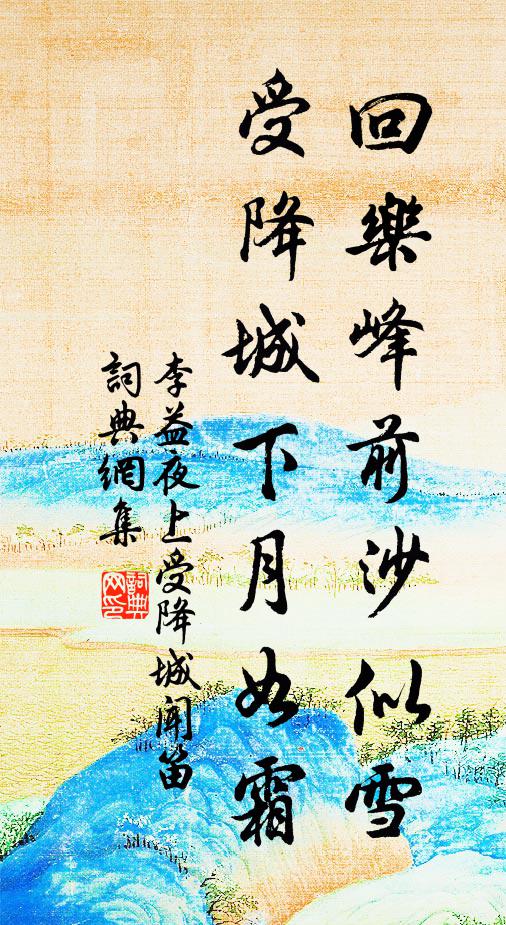 回樂峰前沙似雪
受降城下月如霜
李益夜上受降城聞笛
詞典網集
詞典
网印